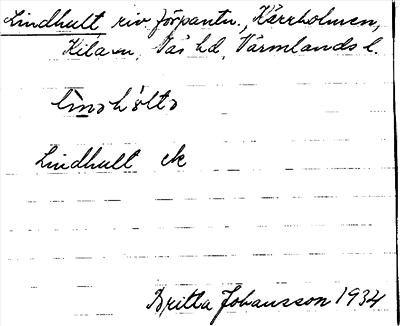 Lindhult riv. förpantn., Kärrholmen,
Kila sn, Näs hd, Värmlands l.
Lindhult ek
Britta Johansson 1934